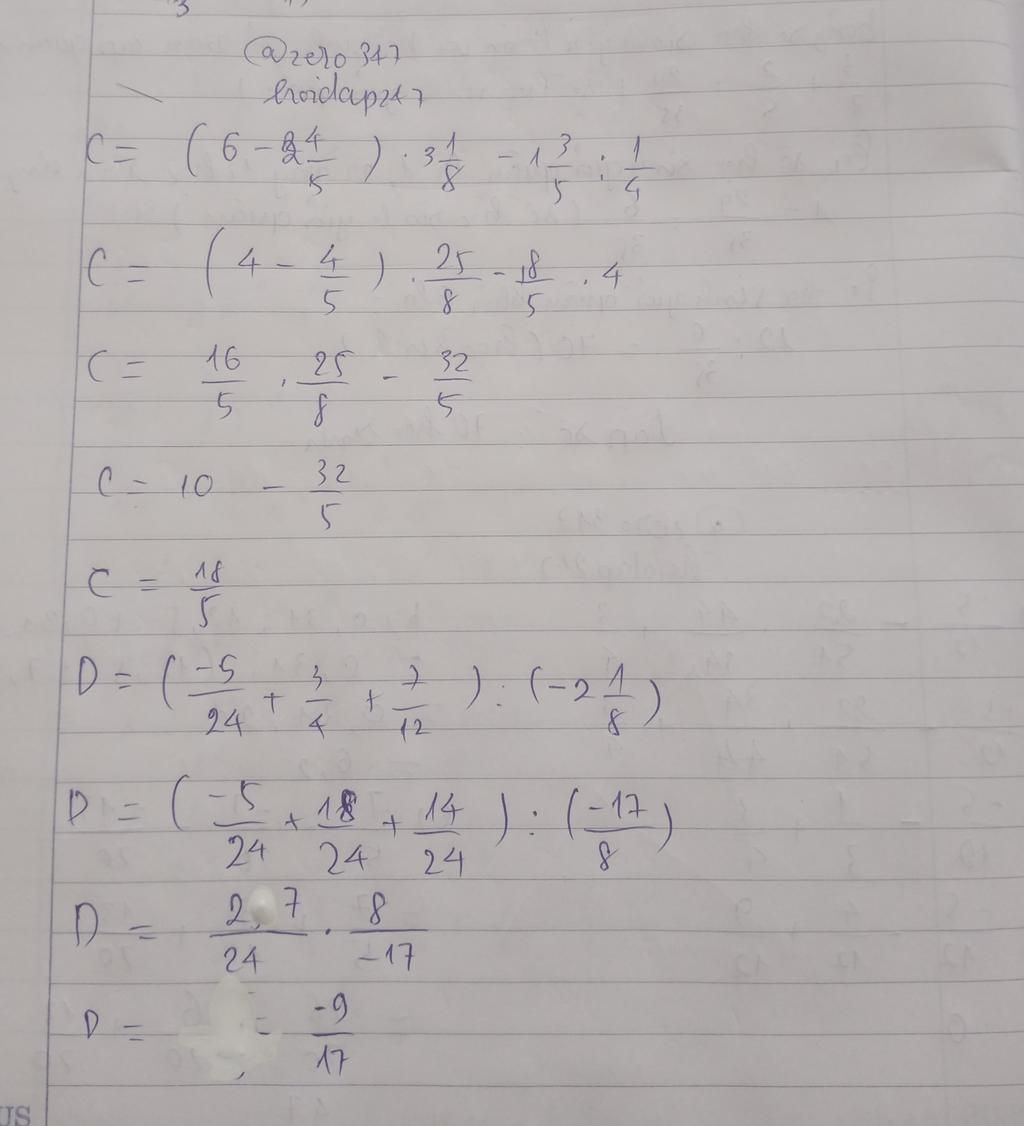 @zero347
hoidap247
C = (6 - 2 4/5) . 3 1/8 - 1 3/5 : 1/4
C = (4 - 4/5) . 25/8 - 8/5 . 4
C = 16/5 . 25/8 - 32/5
C = 10 - 32/5
C = 18/5
D = (-5/24 + 3/4 + 7/12) : (-2 1/8)
D = (-5/24 + 18/24 + 14/24) : (-17/8)
D = 27/24 . 8/-17
D = = -9/17
US